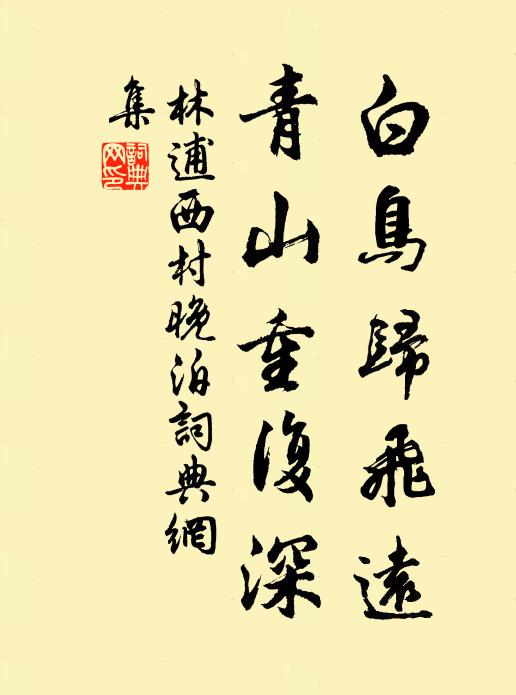 白鳥歸飛遠
青山重復深
林逋西村晚泊詞典網
集
詞典網印